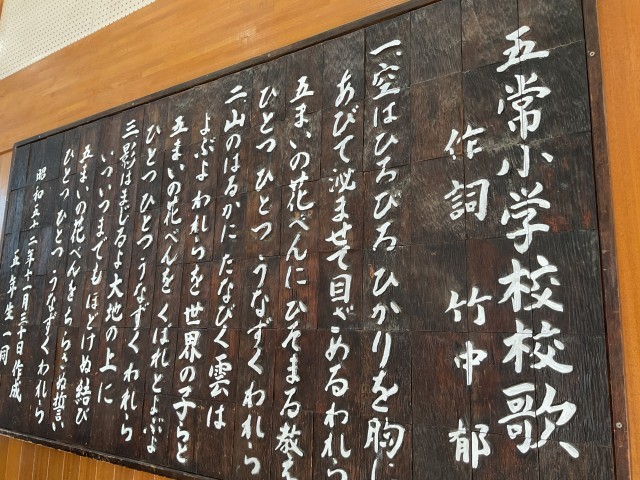 五常小学校校歌
作詞 竹中郁
一、空はひろびろ ひかりを胸に
あびて泌ませて目ざめるわれら
五まいの花べんにひそまる教え
ひとつ ひとつ うなずくわれら
二、山のはるかに たなびく雲は
よぶよ われらを世界の子らと
五まいの花べんを くばれとよぶよ
ひとつ ひとつ うなずくわれら
三、影はまじるよ大地の上に
いついつまでも ほどけぬ結び
五まいの花べんをちらさぬ誓い
ひとつ ひとつ うなずくわれら
昭和五十二年十一月三十日作成
五年生一同